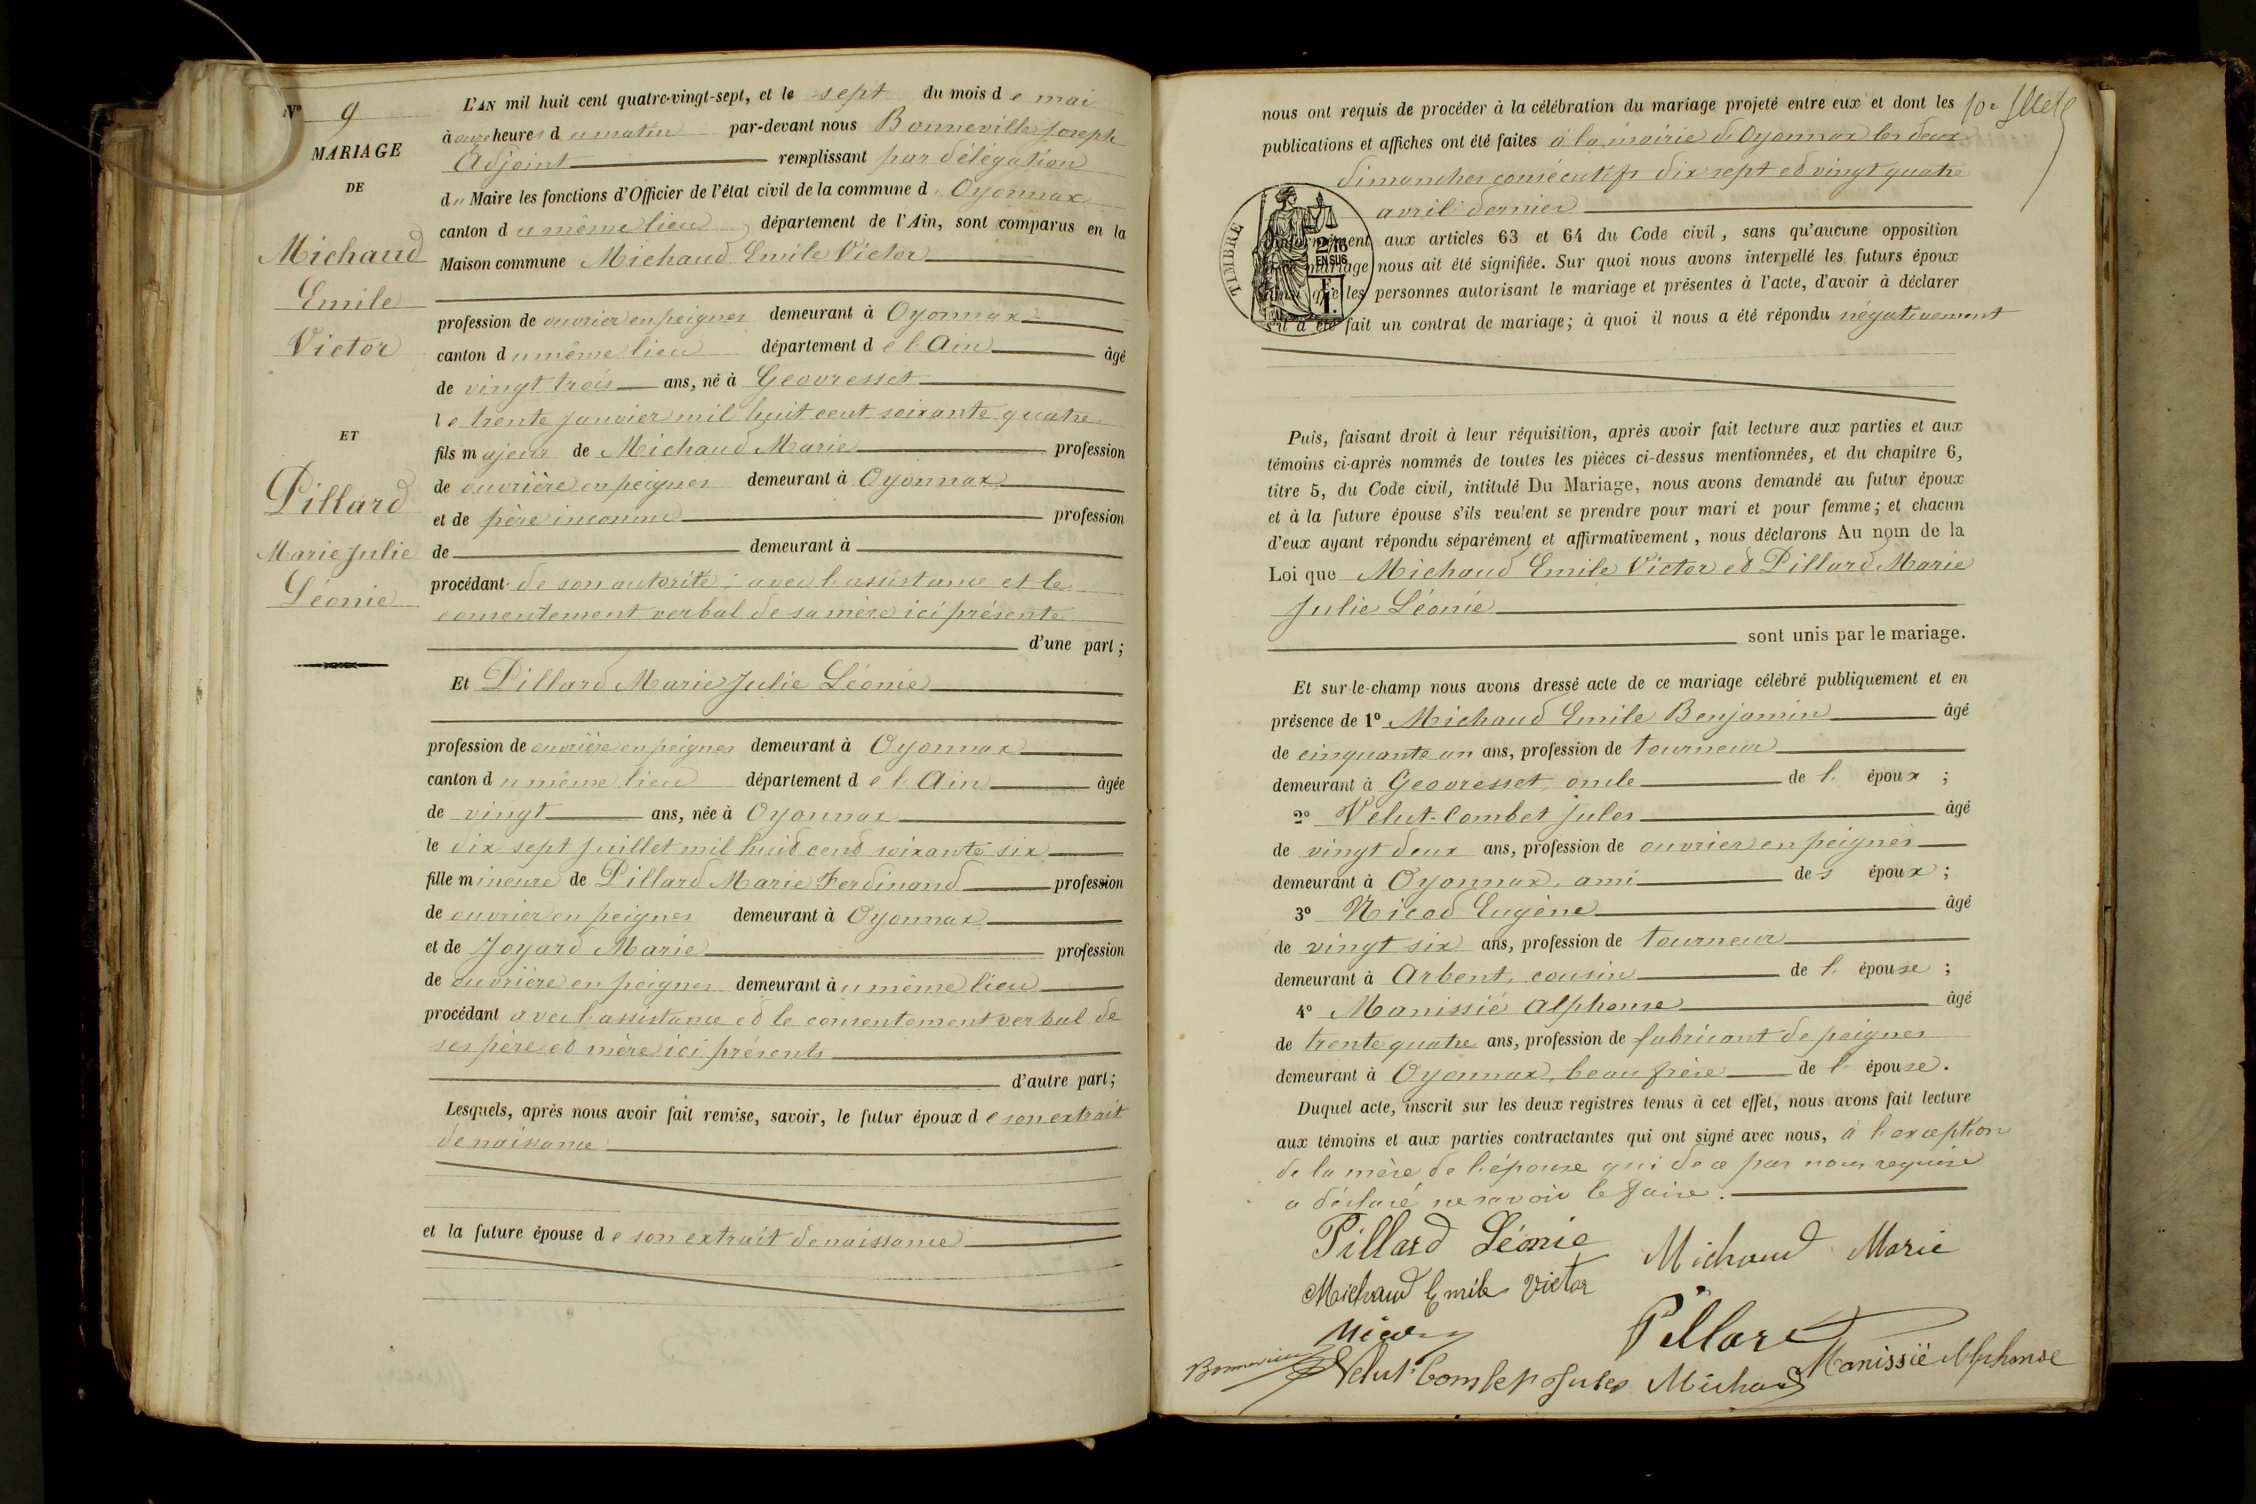 N° 9
MARIAGE
DE
Michaud
Emile
Victor
ET
Pillard
Marie Julie
Léonie
L'AN mil huit cent quatre-vingt-sept, et le sept du mois de mai
à onze heures du matin par-devant nous Bonneville Joseph
Adjoint remplissant par délégation
du Maire les fonctions d'Officier de l'état civil de la commune d'Oyonnax
canton du même lieu, département de l'Ain, sont comparus en la
Maison commune Michaud Emile Victor
profession de ouvrier en peignes demeurant à Oyonnax
canton du même lieu département de l'Ain âgé
de vingt trois ans, né à Geovresset
le trente janvier mil huit cent soixante quatre
fils majeur de Michaud Marie profession
de ouvrière en peignes demeurant à Oyonnax
et de père inconnu profession
de demeurant à
procédant de son autorité; avec l'assistance et le
consentement verbal de sa mère ici présente
d'une part;
Et Pillard Marie Julie Léonie
profession de ouvrière en peignes demeurant à Oyonnax
canton du même lieu département de l'Ain âgée
de vingt ans, née à Oyonnax
le dix sept Juillet mil huit cent soixante six
fille mineure de Pillard Marie Ferdinand profession
de ouvrier en peignes demeurant à Oyonnax
et de Joyard Marie profession
de ouvrière en peignes demeurant au même lieu
procédant avec l'assistance et le consentement verbal de
ses père et mère ici présents
d'autre part;
Lesquels, après nous avoir fait remise, savoir, le futur époux de son extrait
de naissance
et la future épouse de son extrait de naissance
nous ont requis de procéder à la célébration du mariage projeté entre eux et dont les
publications et affiches ont été faites à la mairie d'Oyonnax les deux
dimanches consécutifs dix sept et vingt quatre
avril dernier
conformément aux articles 63 et 64 du Code civil, sans qu'aucune opposition
mariage nous ait été signifiée. Sur quoi nous avons interpellé les futurs époux
que les personnes autorisant le mariage et présentes à l'acte, d'avoir à déclarer
s'il a été fait un contrat de mariage; à quoi il nous a été répondu négativement
TIMBRE
2/10
EN SUS
Puis, faisant droit à leur réquisition, après avoir fait lecture aux parties et aux
témoins ci-après nommés de toutes les pièces ci-dessus mentionnées, et du chapitre 6,
titre 5, du Code civil, intitulé Du Mariage, nous avons demandé au futur époux
et à la future épouse s'ils veulent se prendre pour mari et pour femme; et chacun
d'eux ayant répondu séparément et affirmativement, nous déclarons Au nom de la
Loi que Michaud Emile Victor et Pillard Marie
Julie Léonie
sont unis par le mariage.
Et sur-le-champ nous avons dressé acte de ce mariage célébré publiquement et en
présence de 1° Michaud Emile Benjamin âgé
de cinquante un ans, profession de tourneur
demeurant à Geovresset, oncle de l'époux;
2° Velut-Combet Jules âgé
de vingt deux ans, profession de ouvrier en peignes
demeurant à Oyonnax, ami des époux;
3° Nicod Eugène âgé
de vingt six ans, profession de tourneur
demeurant à Arbent, cousin de l'épouse;
4° Manissié Alphonse âgé
de trente quatre ans, profession de fabricant de peignes
demeurant à Oyonnax, beau frère de l'épouse.
Duquel acte, inscrit sur les deux registres tenus à cet effet, nous avons fait lecture
aux témoins et aux parties contractantes qui ont signé avec nous, à l'exception
de la mère de l'épouse qui de ce par nous requise
a déclaré ne savoir le faire.
Pillard Léonie Michaud Marie
Michaud Emile Victor
Nicod Pillard
Bonneville Velut-Combet Jules Michaud Manissié Alphonse